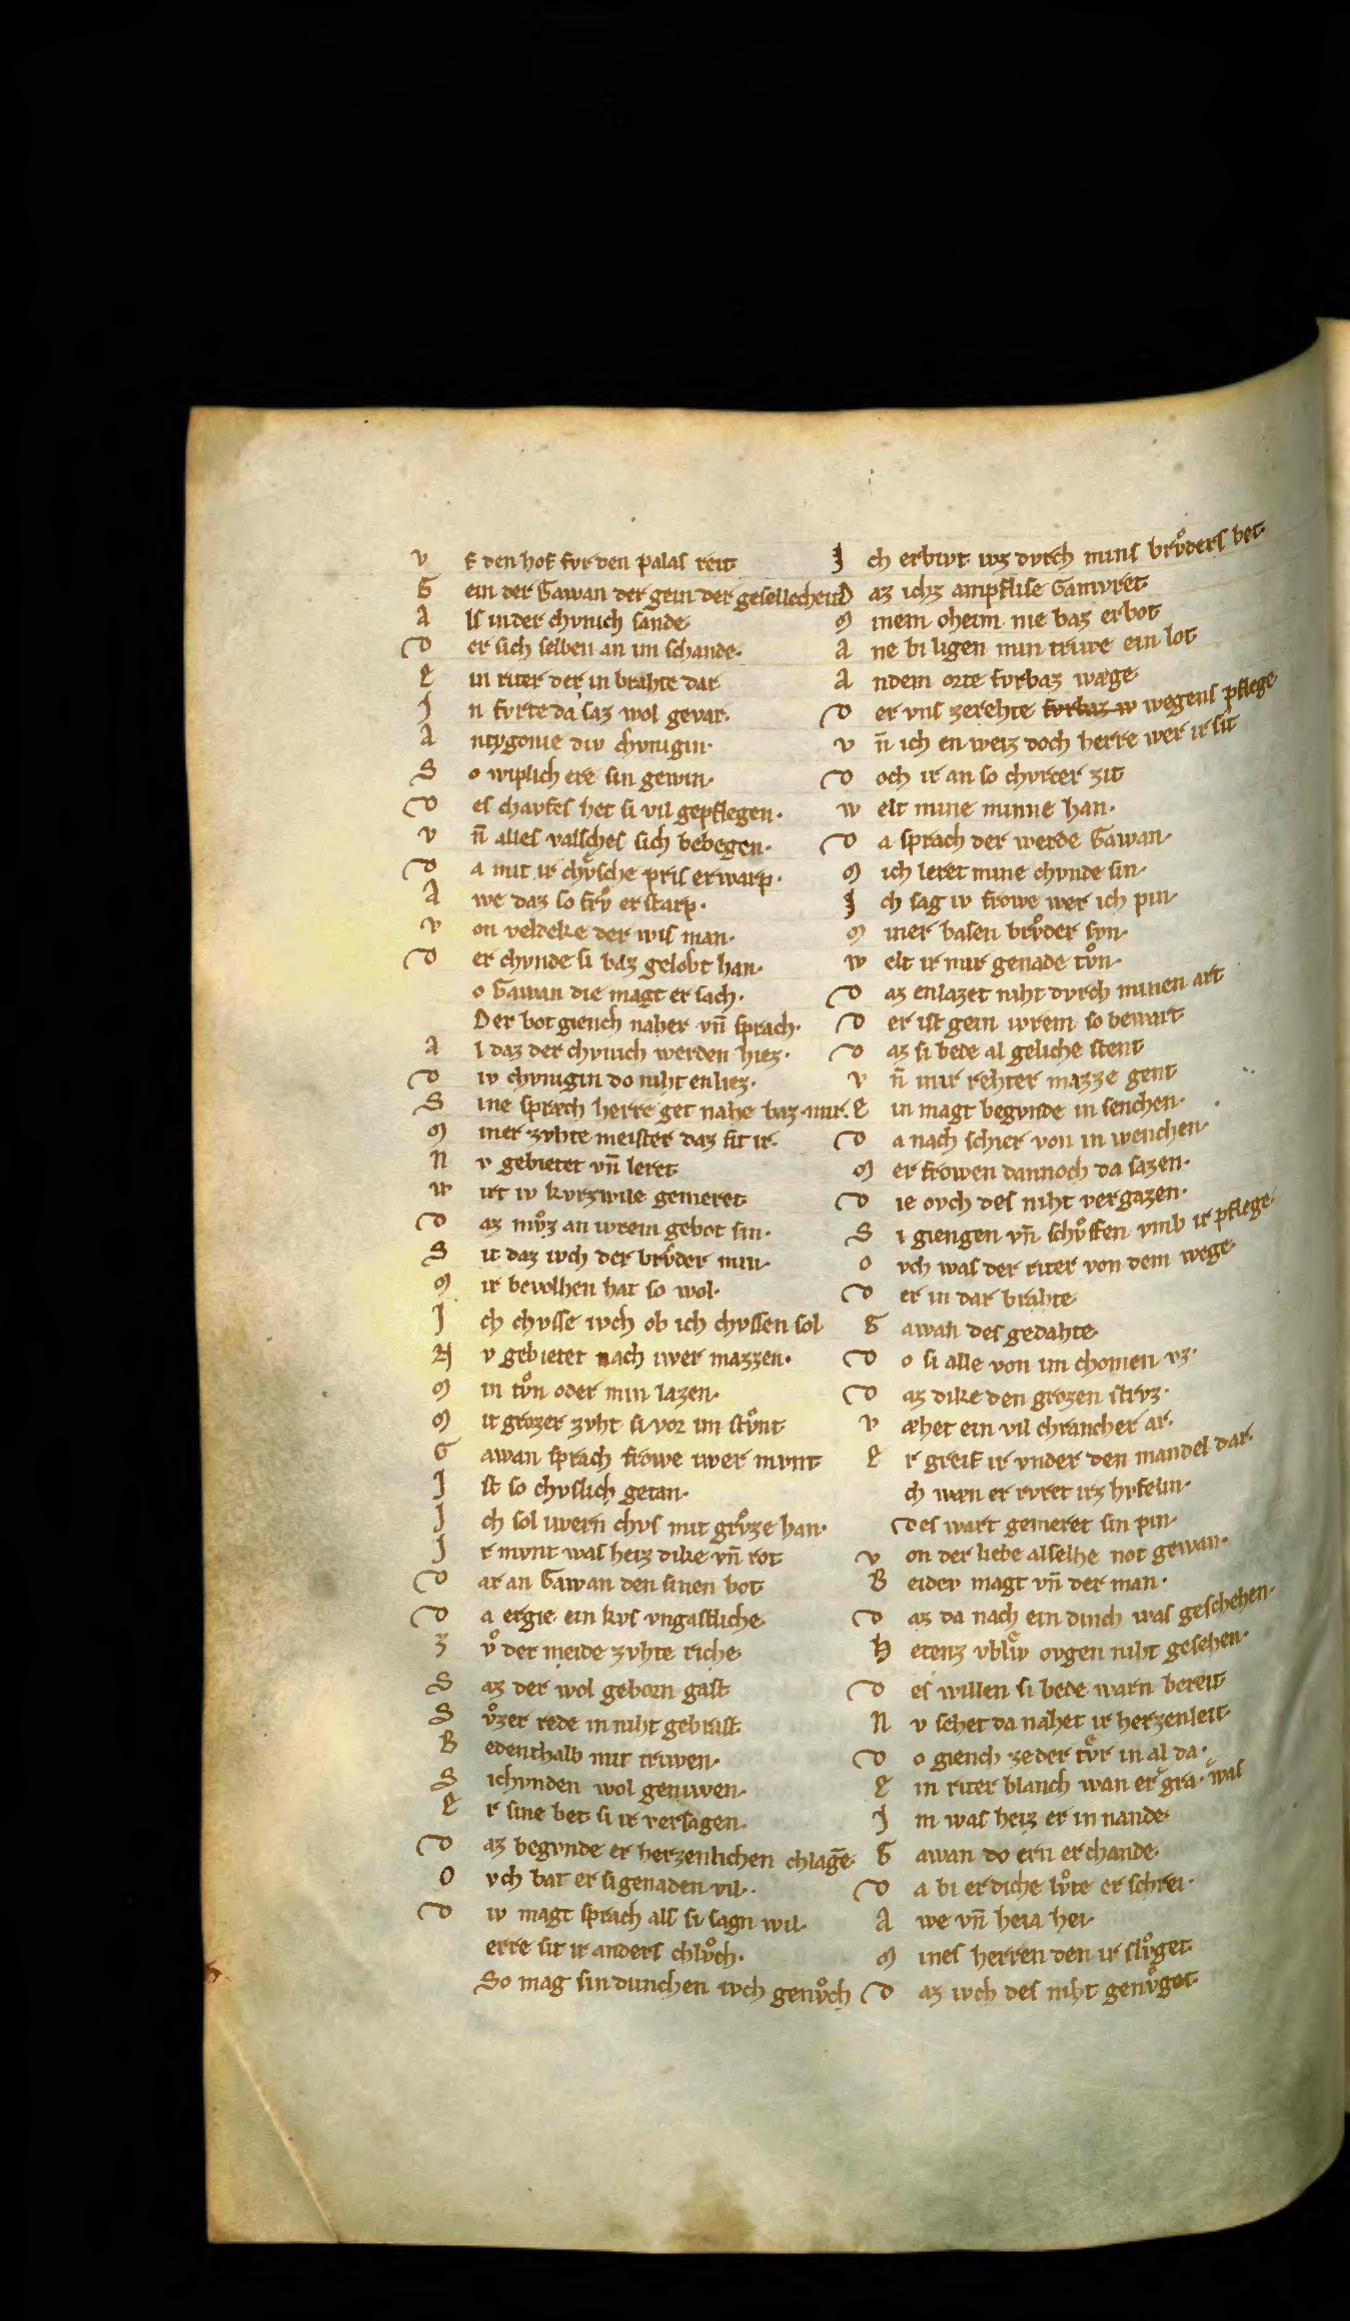 V f den hof fvr den palas reit
G ein der Gawan der gein der gesellecheit
A ls in der chvnich sande
D er sich selben an im schande.
E in riter der in brahte dar
J n fvrte da saz wol gevar.
A ntygonie div chvnigin.
S o wiplich ere sin gewin.
D es chavfes het si vil gepflegen.
V n̄ alles valsches sich bebegen.
D a mit ir chvͤsche pris erwarp.
A we daz so frvͦ erstarp.
V on veldeke der wis man.
D er chvnde si baz gelobt han.
o Gawan die magt ersach.
Der bot giench naher vn̄ sprach.
A l daz der chvnich werden hiez.
D iv chvnigin do niht enliez.
S ine sprach herre get nahe baz mir.
M iner zvhte meister daz sit ir.
N v gebietet vn̄ leret
W irt iv kvrzwile gemeret
D az mvͦz an iwrem gebot sin.
S it daz ivch der brvͦder min.
M ir bevolhen hat so wol.
J ch chvsse ivch ob ich chvssen sol
N v gebietet nach iwer mazzen.
M in tvͦn oder min lazen.
M it grozer zvht si vor im stvͦnt
G awan sprach frowe iwer mvnt
J st so chvslich getan.
J ch sol iwern chvs mit grvͦze han.
J r mvnt was heiz dike vn̄ rot
D ar an Gawan den sinen bot
D a ergie ein kvs vngastliche.
Z vͦ der meide zvhte riche.
S az der wol geborn gast
S vͦzer rede in niht gebrast
B edenthalb mit triwen.
S i chvnden wol geniwen.
E r sine bet si ir versagen.
D az begvnde er herzenlichen chlagē.
O vch bat er si genaden vil.
D iv magt sprach als si sagn wil.
erre sit ir anders chlvͦch.
So mag sin dunchen ivch genvͦch
J ch erbivt iwz dvrch mins brvͦders bet.
D az ichz ampflise Gamvret
M inem oheim nie baz erbot
A ne bi ligen min triwe ein lot
A n dem orte fvrbaz wæge
D er vns zerehte fvrbaz w wegens pflege
V n̄ ich en weiz doch herre wer ir sit
D och ir an so chvrcer zit
W elt mine minne han.
D a sprach der werde Gawan.
M ich leret mine chvnde sin.
J ch sag iv frowe wer ich pin
M iner basen brvͦder svn.
W elt ir mir genade tvͦn.
D az enlazet niht dvrch minen art
D er ist gein iwrem so bewart
D az si bede al geliche stent
V n̄ mir rehter mazze gent
E in magt begvnde in senchen.
D a nach schier von in wenchen.
M er frowen dannoch da sazen.
D ie ovch des niht vergazen.
S i giengen vn̄ schvͦffen vmb ir pflege.
O vch was der riter von dem wege.
D er in dar brahte.
G awan des gedahte.
D o si alle von im chomen vz.
D az dike den grozen strvz.
V æhet ein vil chrancher ar.
E r greif ir vnder den mandel dar.
ch wæn er rvret irz hvfelin.
des wart gemeret sin pin.
V on der liebe alselhe not gewan.
B eidev magt vn̄ der man.
D az da nach ein dinch was geschehen.
H etenz vblwͤ ovgen niht gesehen.
D es willen si bede warn bereit
N v sehet da nahet ir herzenleit.
D o giench ze der tvͤr in al da.
E in riter blanch wan er gra. was
J m was heiz er in nande.
G awan do ern erchande.
D a bi er diche lvͦte er schrei.
A we vn̄ heia hei.
M ines herren den ir slvͦget
D az ivch des niht genvͦget